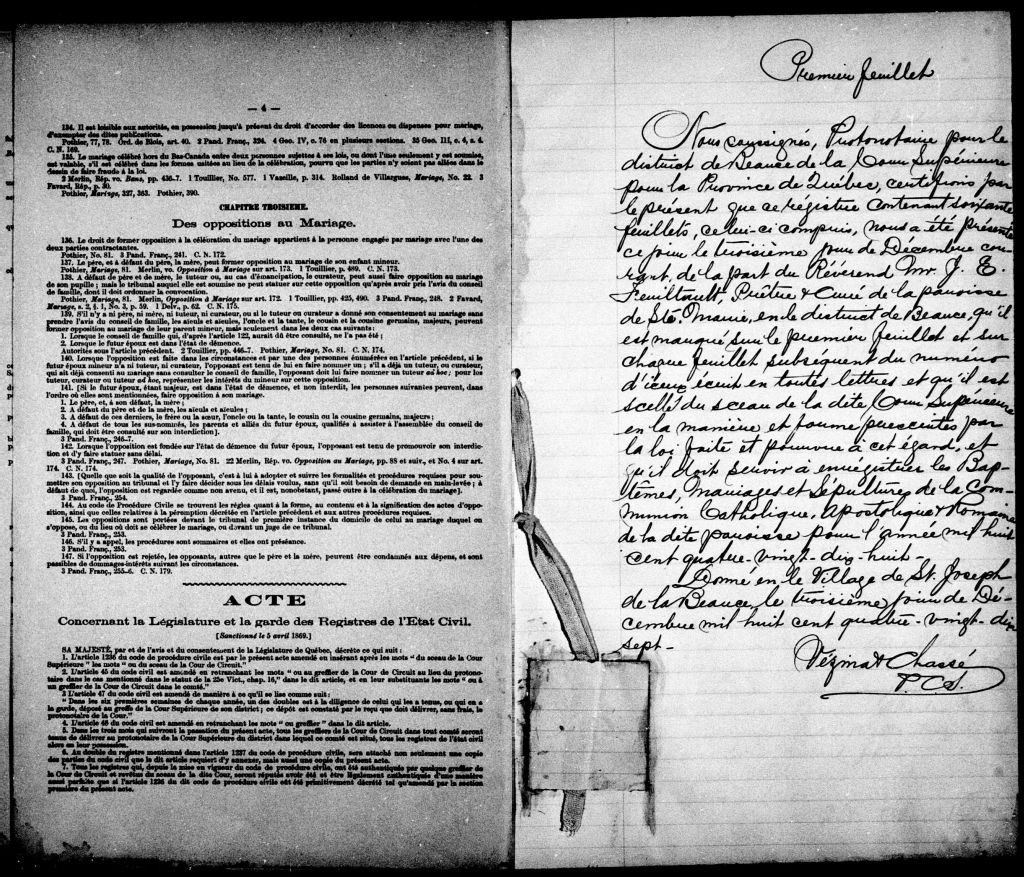 — 4 —
134. Il est loisible aux autorités, en possession jusqu'à présent du droit d'accorder des licences ou dispenses pour mariage,
d'exempter des dites publications.
Pothier, 77, 78. Ord. de Blois, art. 40. 2 Pand. Franç., 324. 4 Geo. IV, c. 75 en plusieurs sections. 35 Geo. III, c. 4, s. 4.
C. N. 169.
135. Le mariage célébré hors du Bas-Canada entre deux personnes sujettes à ses lois, ou dont l'une seulement y est soumise,
est valable, s'il est célébré dans les formes usitées au lieu de la célébration, pourvu que les parties n'y soient pas allées dans le
dessin de faire fraude à la loi.
2 Merlin, Rép. vo. Bans, pp. 436-7. 1 Touillier, No. 577. 1 Vazeille, p. 314. Rolland de Villargues, Mariage, No. 22. 3
Favard, Rép., p. 30.
Pothier, Mariage, 327, 363. Pothier, 390.
CHAPITRE TROISIEME.
Des oppositions au Mariage.
136. Le droit de former opposition à la célébration du mariage appartient à la personne engagée par mariage avec l'une des
deux parties contractantes.
Pothier, No. 81. 3 Pand. Franç., 241. C. N. 172.
137. Le père, et à défaut du père, la mère, peut former opposition au mariage de son enfant mineur.
Pothier, Mariage, 81. Merlin, vo. Opposition à Mariage sur art. 173. 1 Touillier, p. 489. C. N. 173.
138. A défaut de père et de mère, le tuteur, et en cas d'émancipation, le curateur, peut aussi faire opposition au mariage
de son pupille; mais le tribunal auquel elle est soumise ne peut statuer sur cette opposition qu'après avoir pris l'avis du conseil
de famille, dont il doit ordonner la convocation.
Pothier, Mariage, 81. Merlin, Opposition à Mariage sur art. 172. 1 Touillier, pp. 425, 490. 3 Pand. Franç., 248. 2 Favard,
Mariage, s. 2, § 1, No. 3, p. 59. 1 Delv., p. 62. C. N. 175.
139. S'il n'y a ni père, ni mère, ni tuteur, ni curateur, ou si le tuteur ou curateur a donné son consentement au mariage sans
prendre l'avis du conseil de famille, les aïeuls et aïeules, l'oncle et la tante, le cousin et la cousine germains, majeurs, peuvent
former opposition au mariage de leur parent mineur, mais seulement dans les deux cas suivants:
1. Lorsque le conseil de famille qui, d'après l'article 122, aurait dû être consulté, ne l'a pas été;
2. Lorsque le futur époux est dans l'état de démence.
Autorités sous l'article précédent. 2 Touillier, pp. 446-7. Pothier, Mariage, No. 81. C. N. 174.
140. Lorsque l'opposition est faite dans les circonstances et par une des personnes énumérées en l'article précédent, si le
futur époux mineur n'a ni tuteur, ni curateur, l'opposant est tenu de lui en faire nommer un; s'il a déjà un tuteur, ou curateur,
qui ait déjà consenti au mariage sans consulter le conseil de famille, l'opposant doit lui faire nommer un tuteur ad hoc; pour les
tuteur, curateur ou tuteur ad hoc, représenter les intérêts du mineur sur cette opposition.
141. [Si le futur époux, étant majeur, est dans l'état de démence, et non interdit, les personnes suivantes peuvent, dans
l'ordre où elles sont mentionnées, faire opposition à son mariage.
1. Le père, et, à son défaut, la mère;
2. A défaut du père et de la mère, les aïeuls et aïeules;
3. A défaut de ces derniers, le frère ou la sœur, l'oncle ou la tante, le cousin ou la cousine germains, majeurs;
4. A défaut de tous les sus-nommés, les parents et alliés du futur époux, qualifiés à assister à l'assemblée du conseil de
famille, qui doit être consulté sur son interdiction].
3 Pand. Franç., 246-7.
142. Lorsque l'opposition est fondée sur l'état de démence du futur époux, l'opposant est tenu de promouvoir son interdic-
tion et d'y faire statuer sans délai.
3 Pand. Franç., 247. Pothier, Mariage, No. 81. 22 Merlin, Rép. vo. Opposition au Mariage, pp. 88 et suiv., et No. 4 sur art.
174. C. N. 174.
143. [Quelle que soit la qualité de l'opposant, c'est à lui à adopter et suivre les formalités et procédures requises pour sou-
mettre son opposition au tribunal et l'y faire décider sous les délais voulus, sans qu'il soit besoin de demande en main-levée; à
défaut de quoi, l'opposition est regardée comme non avenu, et il est, nonobstant, passé outre à la célébration du mariage].
3 Pand. Franç., 254.
144. Au code de Procédure Civile se trouvent les règles quant à la forme, au contenu et à la signification des actes d'oppo-
sition, ainsi que celles relatives à la péremption décrétée en l'article précédent et aux autres procédures requises.
145. Les oppositions sont portées devant le tribunal de première instance du domicile de celui au mariage duquel on
s'oppose, ou du lieu où doit se célébrer le mariage, ou devant un juge de ce tribunal.
3 Pand. Franç., 253.
146. S'il y a appel, les procédures sont sommaires et elles ont préséance.
3 Pand. Franç., 253.
147. Si l'opposition est rejetée, les opposants, autres que le père et la mère, peuvent être condamnés aux dépens, et sont
passibles de dommages-intérêts suivant les circonstances.
3 Pand. Franç., 255-6. C. N. 179.
ACTE
Concernant la Législature et la garde des Registres de l'Etat Civil.
[Sanctionné le 5 avril 1869.]
SA MAJESTÉ, par et de l'avis et du consentement de la Législature de Québec, décrète ce qui suit:
1. L'article 1236 du code de procédure civile est par le présent acte amendé en insérant après les mots "du sceau de la Cour
Supérieure" les mots "ou du sceau de la Cour de Circuit."
2. L'article 45 du code civil est amendé en retranchant les mots "ou au greffier de la Cour de Circuit au lieu du protono-
taire dans le cas mentionné dans le statut de la 25e Vict., chap. 16," dans le dit article, et en leur substituant les mots "ou à
un greffier de la Cour de Circuit dans le comté."
3 L'article 47 du code civil est amendé de manière à ce qu'il se lise comme suit:
"Dans les six premières semaines de chaque année, un des doubles est à la diligence de celui qui les a tenus, ou qui en a
la garde, déposé au greffe de la Cour Supérieure de son district; ce dépôt est constaté par le reçu que doit délivrer, sans frais, le
protonotaire de la Cour."
4. L'article 48 du code civil est amendé en retranchant les mots "ou greffier" dans le dit article.
5. Dans les trois mois qui suivront la passation du présent acte, tous les greffiers de la Cour de Circuit dans tout comté seront
tenus de délivrer au protonotaire de la Cour Supérieure du district dans lequel ce comté est situé, tous les registres de l'état civil
alors en leur possession.
6. Au double du registre mentionné dans l'article 1237 du code de procédure civile, sera attaché non seulement une copie
des parties du code civil que le dit article requiert d'y annexer, mais aussi une copie du présent acte.
7. Tous les registres qui, depuis la mise en vigueur du code de procédure civile, ont été authentiqués par quelque greffier de
la Cour de Circuit et revêtus du sceau de la dite Cour, seront réputés avoir été et être légalement authentiqués d'une manière
aussi parfaite que si l'article 1236 du dit code de procédure civile eût été primitivement décrété tel qu'amendé par la section
première du présent acte.
Premier feuillet
Nous soussignés, Protonotaire pour le
district de Beauce de la Cour Supérieure
pour la Province de Québec, certifions par
le présent que ce registre contenant soixante
feuillets, celui-ci compris, nous a été présenté
ce jour le troisième jour de Décembre cou-
rant, de la part du Révérend Mr. J. E.
Feuiltault, Prêtre & Curé de la paroisse
de Ste. Marie, en le district de Beauce, qu'il
est marqué sur le premier feuillet et sur
chaque feuillet subséquent du numéro
d'iceux écrit en toutes lettres et qu'il est
scellé du sceau de la dite Cour Supérieure
en la manière et forme prescrites par
la loi faite et pourvue à cet égard, et
qu'il doit servir à enrégistrer les Bap-
têmes, Mariages et Sépultures de la Com-
munion Catholique, Apostolique & Romaine
de la dite paroisse pour l'année mil huit
cent quatre-vingt-dix-huit-
Donné en le Village de St. Joseph
de la Beauce, le troisième jour de Dé-
cembre mil huit cent quatre-vingt-dix
sept-
Vézina & Chassé
P. C. S.